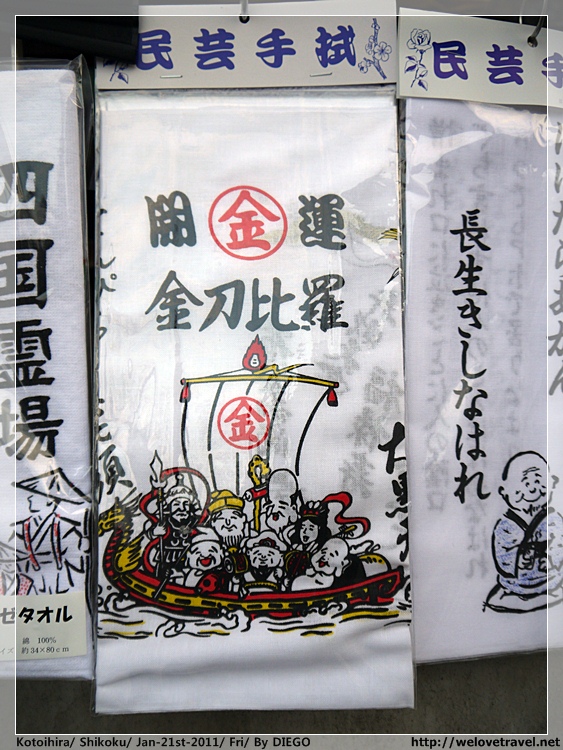 民芸手拭
民芸手
開 金 運
金刀比羅
金
四国霊場
長生きしなはれ
大黒
ゼタオル
綿 100%
イズ 約34×80cm
Kotoihira/ Shikoku/ Jan-21st-2011/ Fri/ By DIEGO
http://welovetravel.net